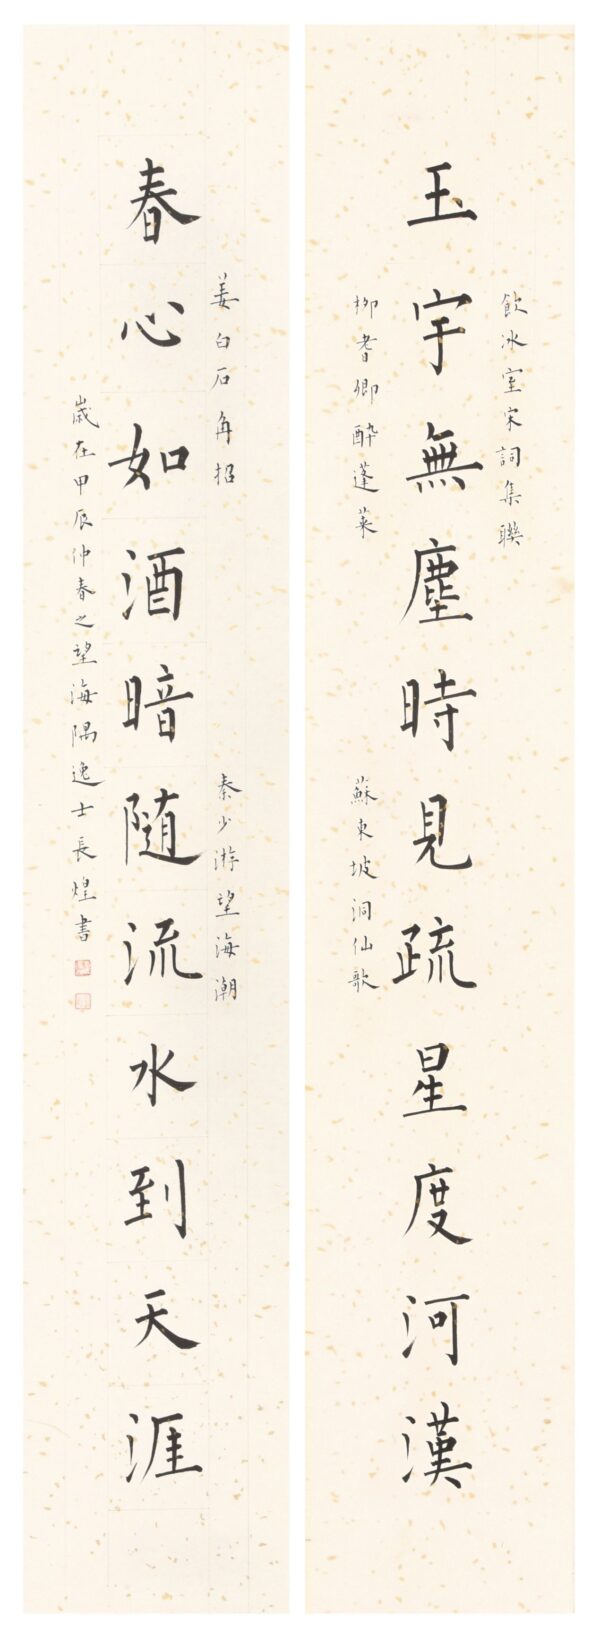 飲冰室宋詞集聯
玉宇無塵時見疏星度河漢
柳耆卿醉蓬萊
蘇東坡洞仙歌
姜白石角招
秦少游望海潮
春心如酒暗随流水到天涯
歲在甲辰仲春之望海隅逸士長煌書